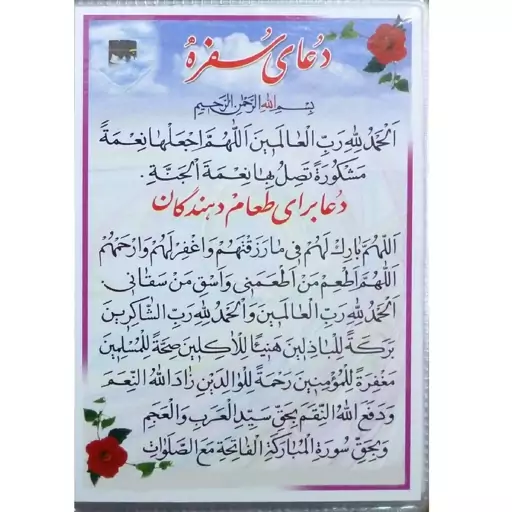 دعای سفره
بِسْمِ اللهِ الرَّحْمٰنِ الرَّحِیمِ
اَلْحَمْدُ لِلّٰهِ رَبِّ الْعالَمینَ اَللّٰهُمَّ اجْعَلْها نِعْمَةً
مَشْکُورَةً تَصِلُ بِها نِعْمَةَ الْجَنَّةِ .
دعا برای طعام دهندگان
اَللّٰهُمَّ بارِكْ لَهُمْ فی ما رَزَقْتَهُمْ وَاغْفِرْ لَهُمْ وَارْحَمْهُمْ
اَللّٰهُمَّ اَطْعِمْ مَنْ اَطْعَمَنی وَاسْقِ مَنْ سَقانی .
اَلْحَمْدُ لِلّٰهِ رَبِّ الْعالَمینَ وَالْحَمْدُ لِلّٰهِ رَبِّ الشّاکِرینَ
بَرَکَةً لِلْباذِلینَ هَنیئاً لِلْآکِلینَ صِحَّةً لِلْمُسْلِمینَ
مَغْفِرَةً لِلْمُؤْمِنینَ رَحْمَةً لِلْوالِدَیْنِ زادَ اللهُ النِّعَمَ
وَدَفَعَ اللهُ النِّقَمَ بِحَقِّ سَیِّدِ الْعَرَبِ وَالْعَجَمِ
وَبِحَقِّ سُورَةِ الْمُبارَکَةِ الْفاتِحَةِ مَعَ الصَّلَواتِ